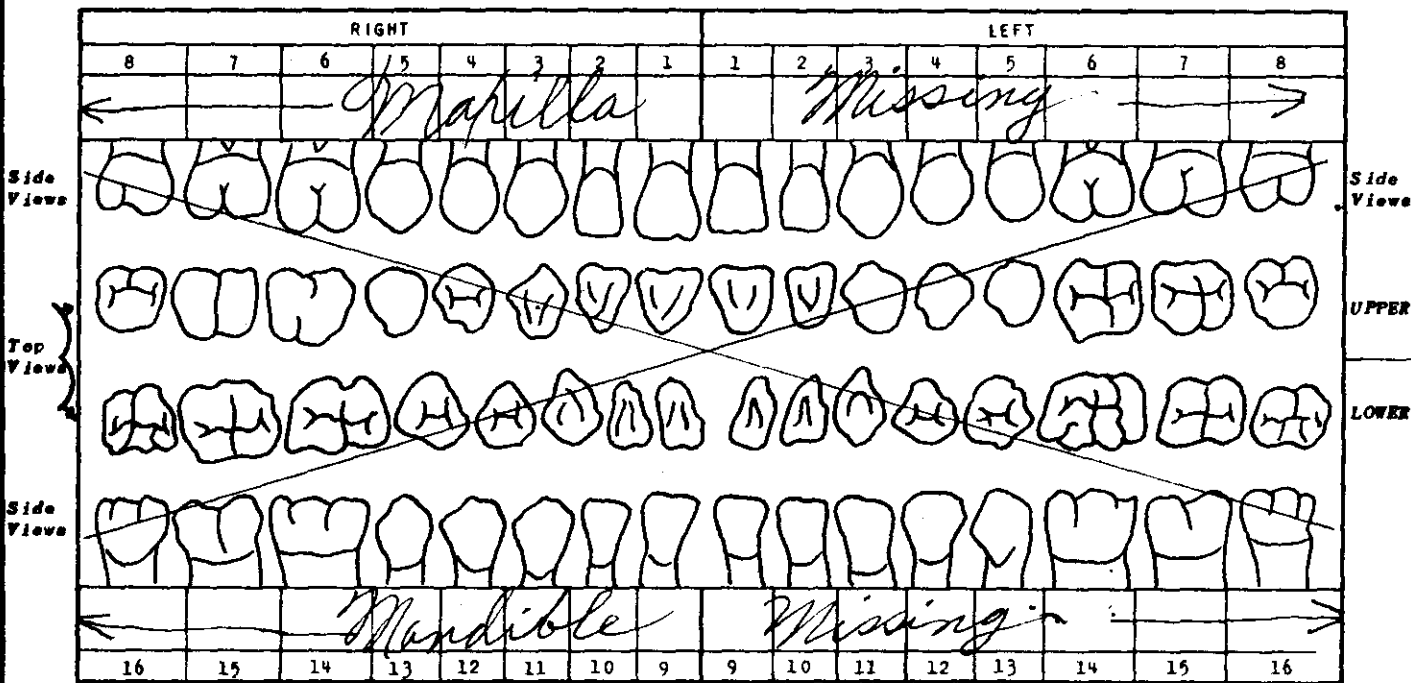 RIGHT LEFT
8 7 6 5 4 3 2 1 1 2 3 4 5 6 7 8
Maxilla Missing
Side Views Side Views
UPPER
Top Views
LOWER
Side Views
Mandible Missing
16 15 14 13 12 11 10 9 9 10 11 12 13 14 15 16